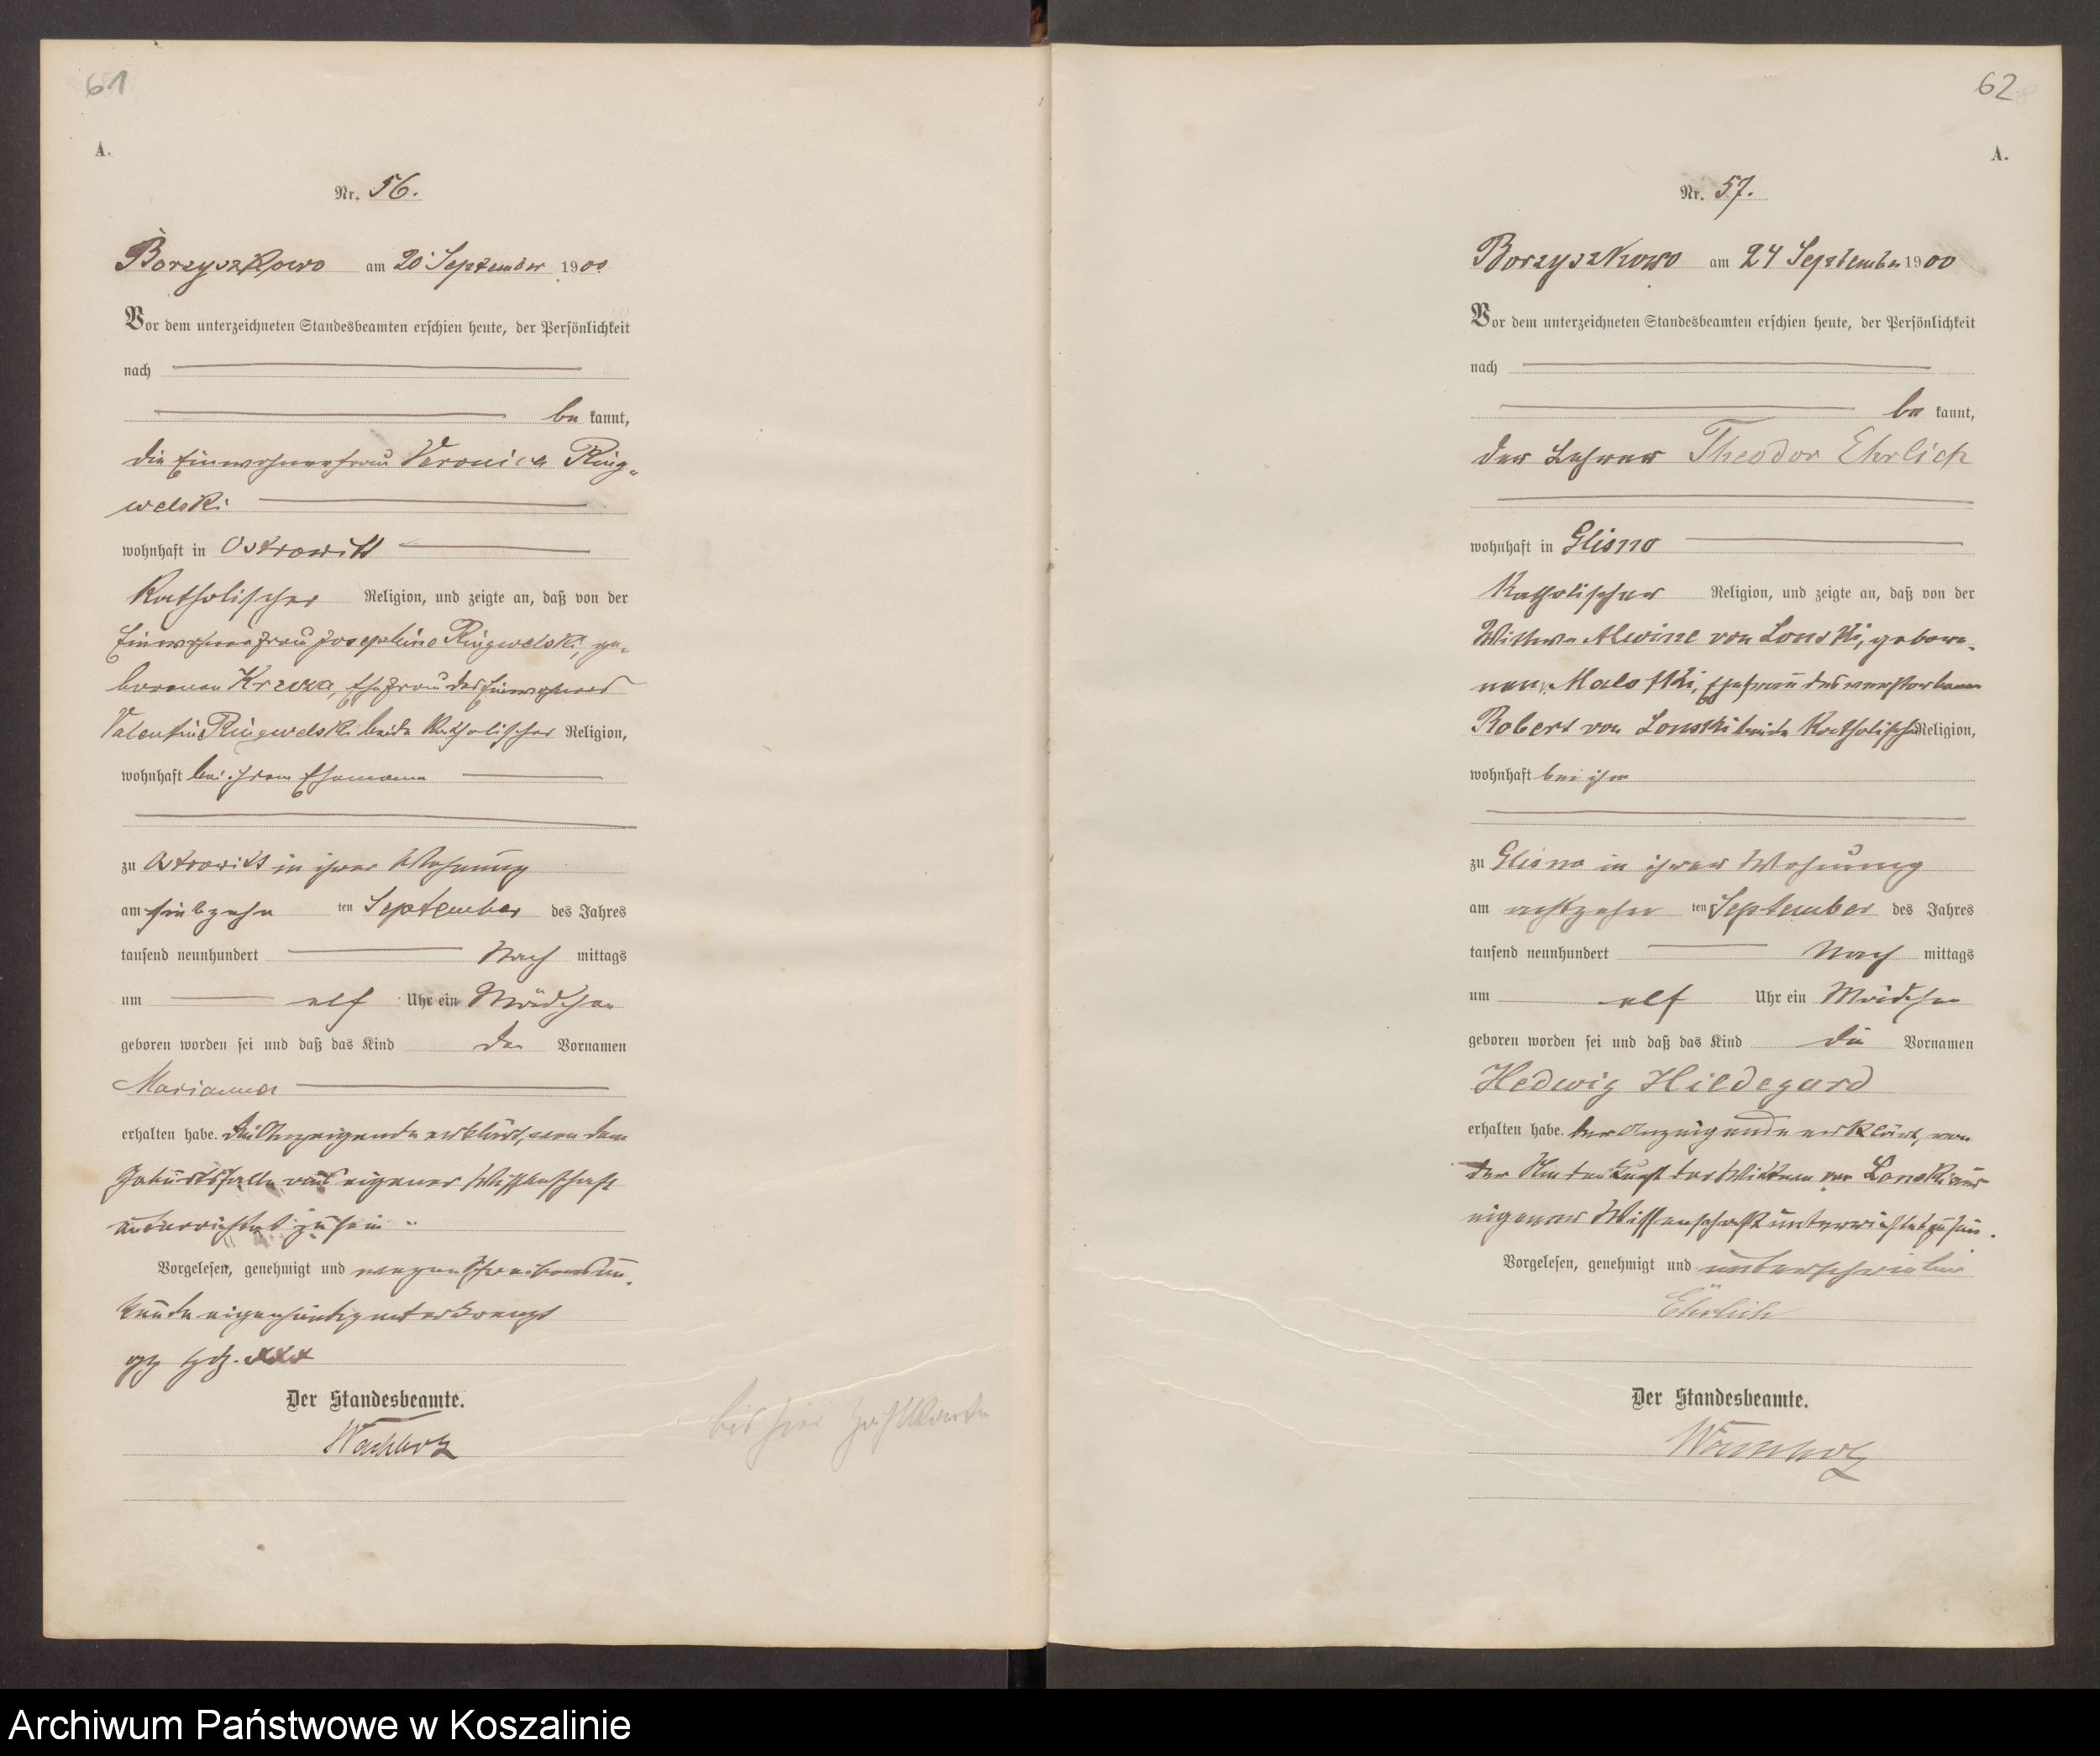 61
A.
Nr. 56.
Borzyszkowo am 20 September 1900
Vor dem unterzeichneten Standesbeamten erschien heute, der Persönlichkeit
nach
be kannt,
die Einwohnerfrau Veronica Ring-
welski
wohnhaft in Ostrowitt
Katholischer Religion, und zeigte an, daß von der
Einwohnerfrau Josephine Ringwelski, ge-
borenen Krzoza, Ehefrau des Einwohners
Valentin Ringwelski beide Katholischer Religion,
wohnhaft bei ihrem Ehemann
zu Ostrowitt in ihrer Wohnung
am siebzehn ten September des Jahres
tausend neunhundert Nach mittags
um elf Uhr ein Mädchen
geboren worden sei und daß das Kind den Vornamen
Marianna
erhalten habe. Die Anzeigende erklärt, von dem
Geburtsfalle aus eigener Wissenschaft
unterrichtet zu sein
Vorgelesen, genehmigt und wegen Schreibens un-
kunde eigenhändig unterkreuzt
gez. xxx
Der Standesbeamte.
Wachholz
bis hier Zählkarte
62
A.
Nr. 57.
Borzyszkowo am 24 September 1900
Vor dem unterzeichneten Standesbeamten erschien heute, der Persönlichkeit
nach
be kannt,
der Lehrer Theodor Ehrlich
wohnhaft in Glisno
Katholischer Religion, und zeigte an, daß von der
Wittwe Alwine von Lonski, gebore-
nen Malotki, Ehefrau des verstorbenen
Robert von Lonski beide Katholischer Religion,
wohnhaft bei ihm
zu Glisno in ihrer Wohnung
am achtzehn ten September des Jahres
tausend neunhundert Nach mittags
um elf Uhr ein Mädchen
geboren worden sei und daß das Kind die Vornamen
Hedwig Hildegard
erhalten habe. Der Anzeigende erklärt, von
der Niederkunft der Wittwe von Lonski aus
eigener Wissenschaft unterrichtet zu sein.
Vorgelesen, genehmigt und unterschrieben
Ehrlich
Der Standesbeamte.
Wachholz
Archiwum Państwowe w Koszalinie